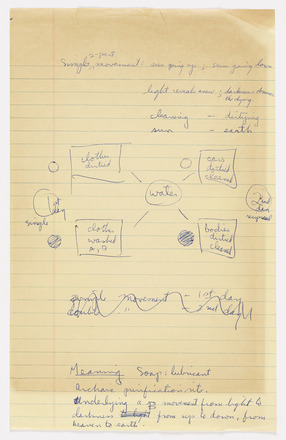 Simple movement: sun going up; sun going down
light reveals ; darkness
cleaning - dirtying
sun - earth
clothes dirtied
cars dirtied cleaned
water
1st day
simple
2nd day
clothes washed
bodies dirtied cleaned
simple movement - 1st day
double " - 2nd day
Meaning Soap: lubricant
Archaic purification rit.
Underlying a movement from light to
darkness from up to down, from
heaven to earth.